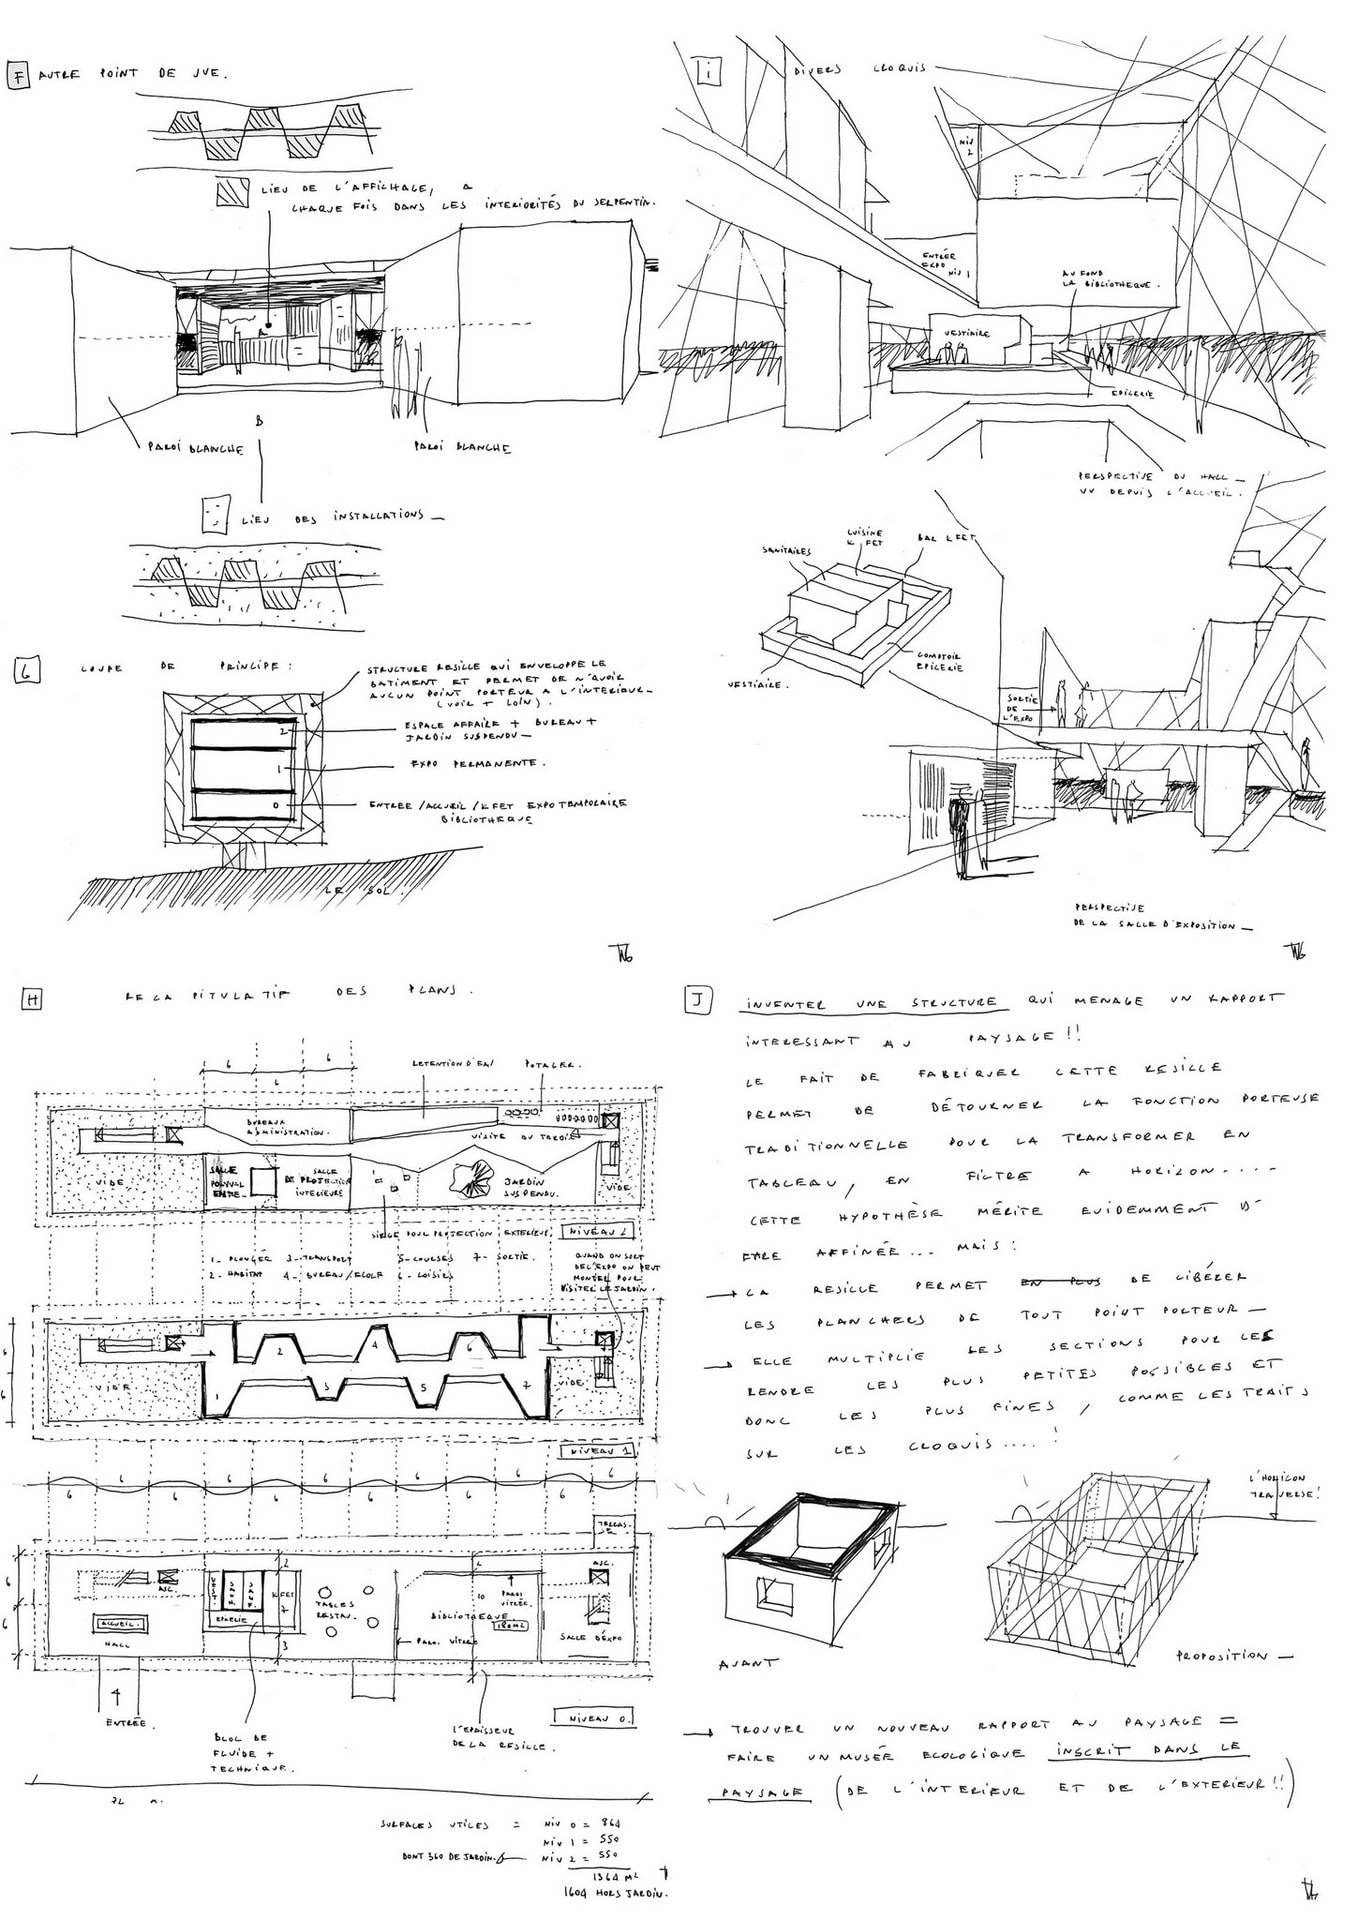 F AUTRE POINT DE VUE.
LIEU DE L'AFFICHAGE, A
CHAQUE FOIS DANS LES INTERIORITÉS DU SERPENTIN.
A
B
PAROI BLANCHE
PAROI BLANCHE
LIEU DES INSTALLATIONS
G COUPE DE PRINCIPE :
STRUCTURE RESILLE QUI ENVELOPPE LE
BATIMENT ET PERMET DE N'AVOIR
AUCUN POINT PORTEUR A L'INTERIEUR
(VOIR + LOIN).
2
ESPACE AFFAIRE + BUREAU +
JARDIN SUSPENDU
1
EXPO PERMANENTE.
0
ENTREE/ACCUEIL/KFET EXPO TEMPORAIRE
BIBLIOTHEQUE
LE SOL.
i DIVERS CROQUIS
NIV
2
ENTRÉE
EXPO
NIV 1
AU FOND
LA BIBLIOTHEQUE.
VESTIAIRE
EPICERIE
PERSPECTIVE DU HALL
VU DEPUIS L'ACCUEIL.
CUISINE
K FET
BAR KFET
SANITAIRES
COMPTOIR
EPICERIE
VESTIAIRE.
SORTIE
DE
L'EXPO
PERSPECTIVE
DE LA SALLE D'EXPOSITION
H RECAPITULATIF DES PLANS.
6 6
6
RETENTION D'EAU POTAGER.
BUREAUX
ADMINISTRATION.
VISITE DU JARDIN
VIDE
SALLE
POLYVAL
ENTE
SALLE
DE PROJECTION
INTERIEURE
JARDIN
SUSPENDU.
VIDE
SIEGE POUR PROJECTION EXTERIEUR.
NIVEAU 2
1- PLONGÉE 3- TRANSPORT 5- COURSES 7- SORTIE.
2- HABITAT 4- BUREAU/ECOLE 6- LOISIRS
QUAND ON SORT
DE L'EXPO ON PEUT
MONTER POUR
VISITER LE JARDIN.
6
6
VIDE
1 2 3 4 5 6 7
VIDE
NIVEAU 1
6 6 6 6 6 6
6 6 6 6 6 6
TERRAS-
SE
6
6
ASC.
ACCUEIL.
HALL
VEST.
SAN.
KFET
EPICERIE
2
7
3
TABLES
RESTAU.
2
10
PAROI
VITRÉE.
BIBLIOTHEQUE
180M2
PAROI VITRÉE
ASC.
SALLE D'EXPO
ENTRÉE.
NIVEAU 0.
BLOC DE
FLUIDE +
TECHNIQUE.
L'EPAISSEUR
DE LA RESILLE.
72 m.
SURFACES UTILES = NIV 0 = 864
NIV 1 = 550
DONT 360 DE JARDIN. NIV 2 = 550
1964 M2
1604 HORS JARDIN.
J INVENTER UNE STRUCTURE QUI MENAGE UN RAPPORT
INTERESSANT AU PAYSAGE !!
LE FAIT DE FABRIQUER CETTE RESILLE
PERMET DE DÉTOURNER LA FONCTION PORTEUSE
TRADITIONNELLE POUR LA TRANSFORMER EN
TABLEAU, EN FILTRE A HORIZON....
CETTE HYPOTHÈSE MÉRITE EVIDEMMENT D'
ETRE AFFINÉE... MAIS :
→ LA RESILLE PERMET EN PLUS DE LIBÉRER
LES PLANCHERS DE TOUT POINT PORTEUR —
→ ELLE MULTIPLIE LES SECTIONS POUR LES
RENDRE LES PLUS PETITES POSSIBLES ET
DONC LES PLUS FINES, COMME LES TRAITS
SUR LES CROQUIS....!
L'HORIZON
TRAVERSE!
AVANT
PROPOSITION —
→ TROUVER UN NOUVEAU RAPPORT AU PAYSAGE =
FAIRE UN MUSÉE ECOLOGIQUE INSCRIT DANS LE
PAYSAGE (DE L'INTERIEUR ET DE L'EXTERIEUR!!)